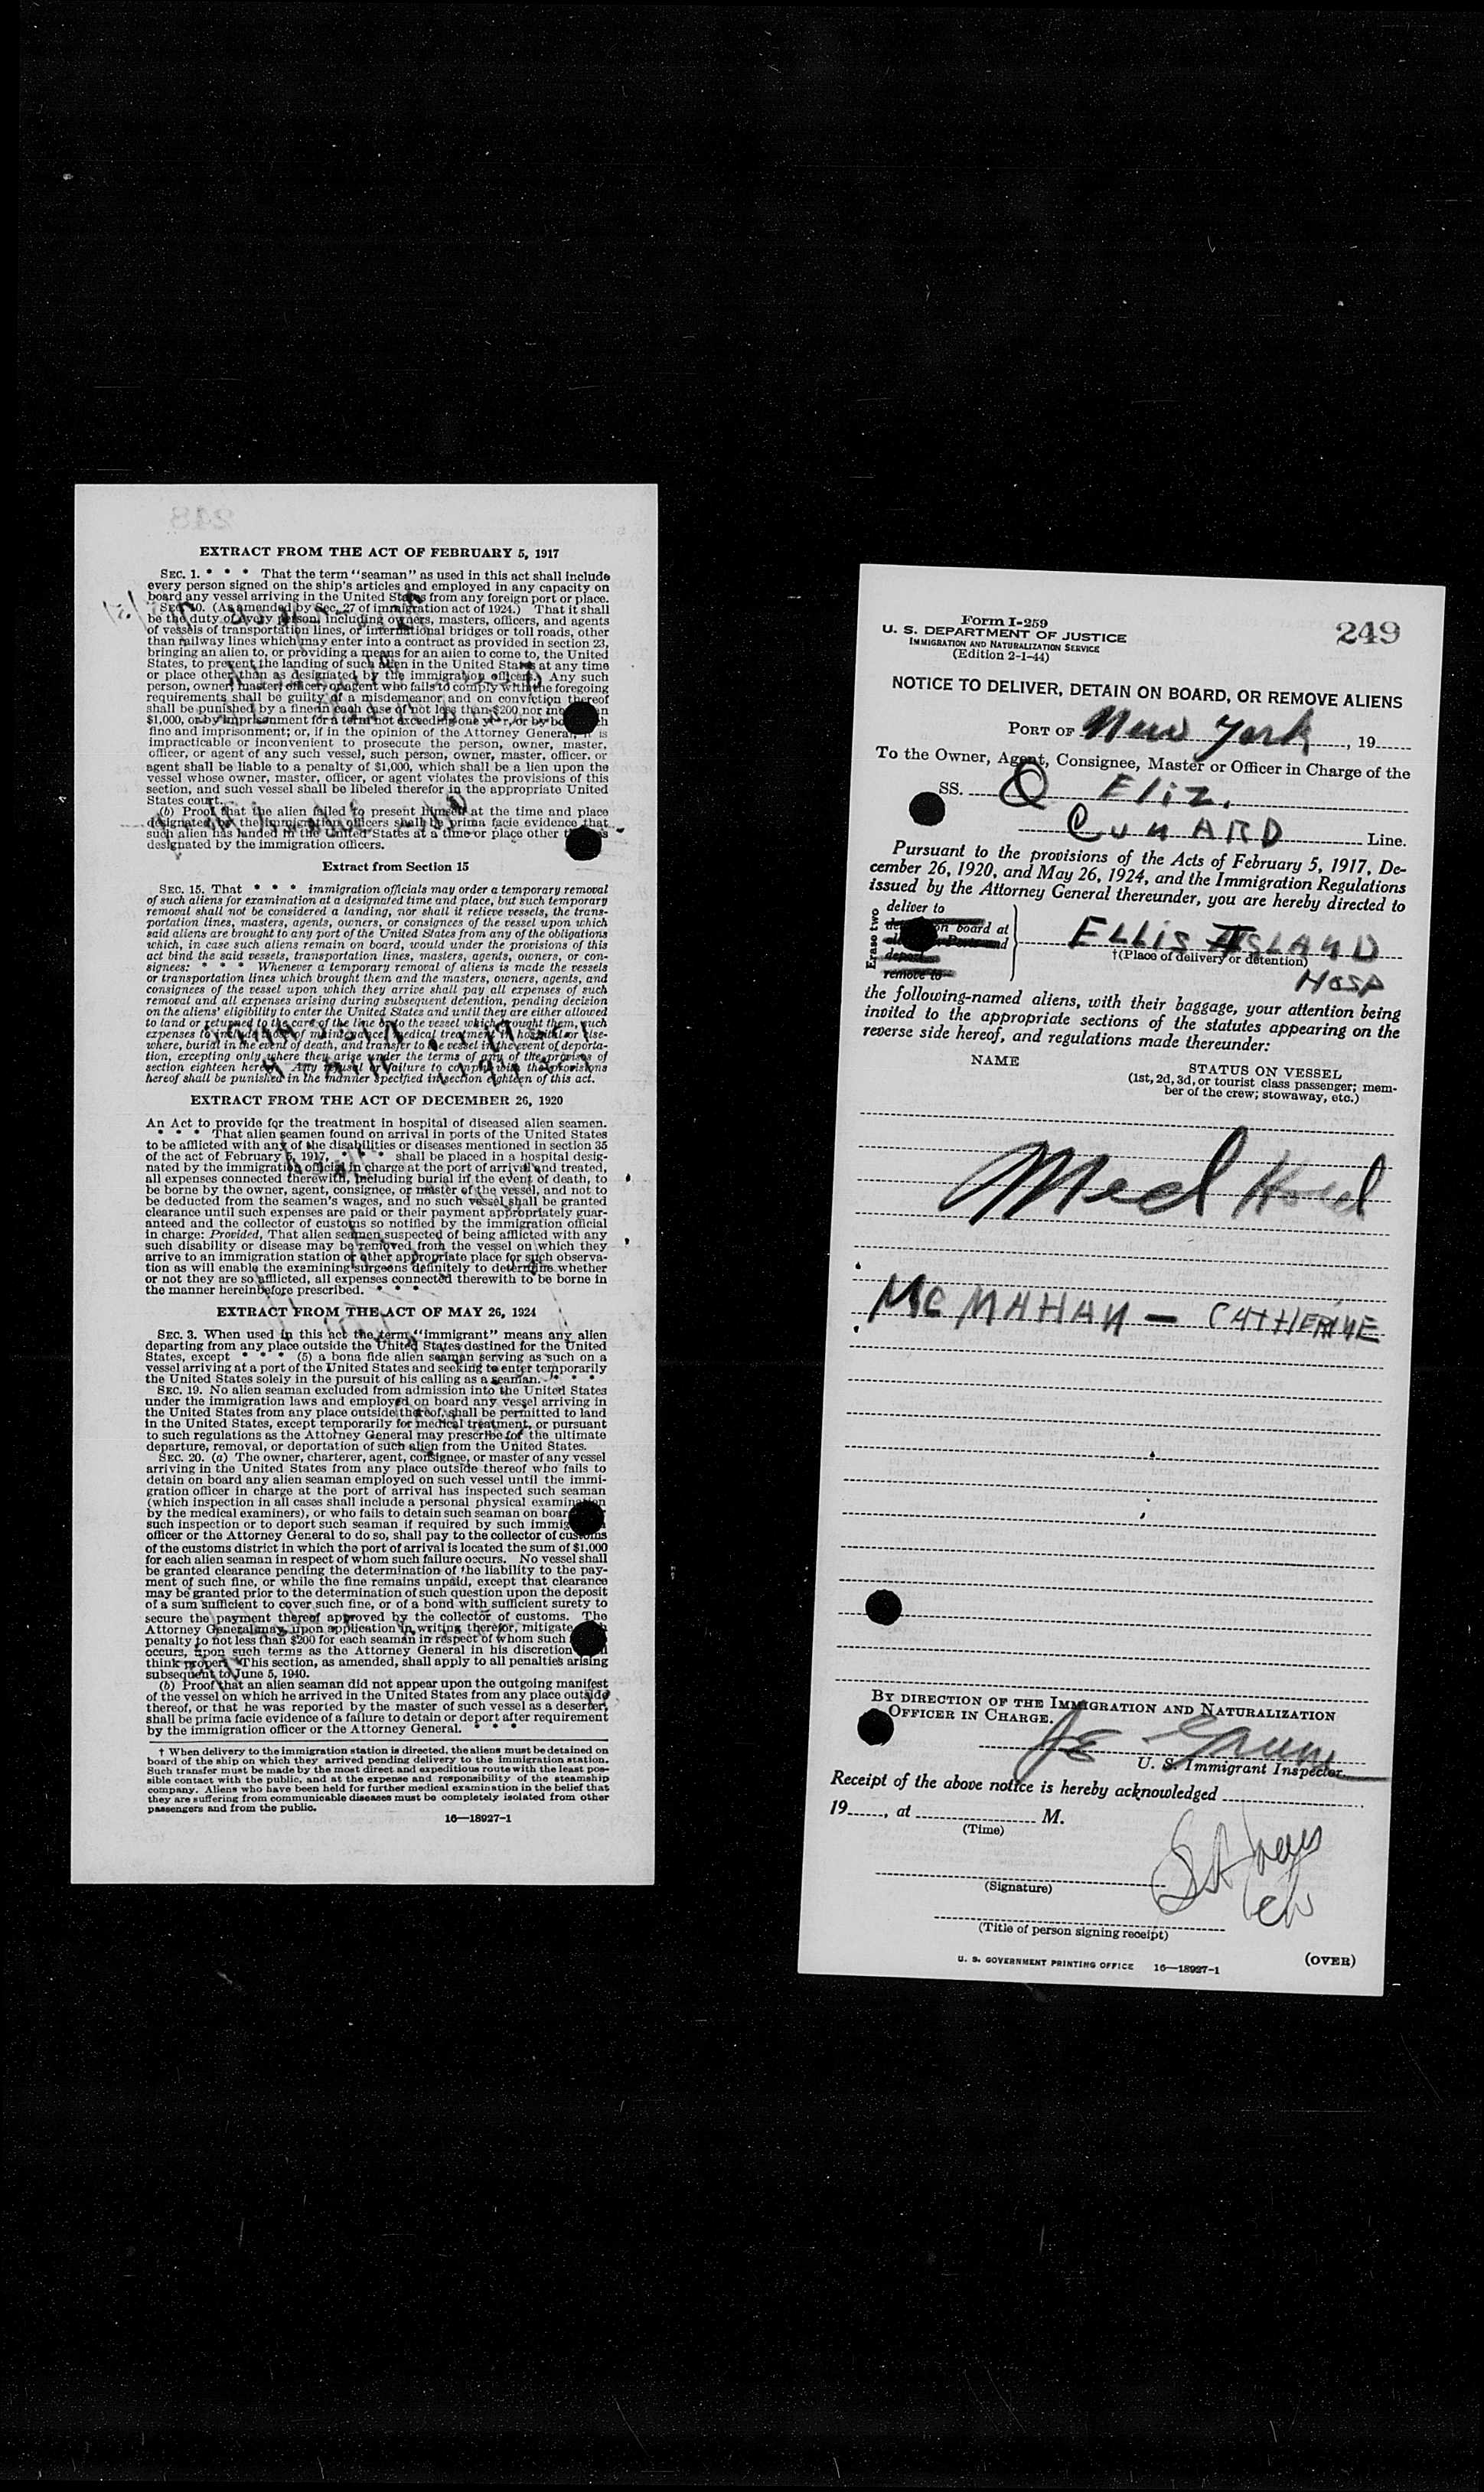 EXTRACT FROM THE ACT OF FEBRUARY 5, 1917
SEC. 1. * * * That the term "seaman" as used in this act shall include
every person signed on the ship's articles and employed in any capacity on
board any vessel arriving in the United States from any foreign port or place.
SEC. 10. (As amended by Sec. 27 of immigration act of 1924.) That it shall
be the duty of every person, including owners, masters, officers, and agents
of vessels of transportation lines, or international bridges or toll roads, other
than railway lines which may enter into a contract as provided in section 23,
bringing an alien to, or providing a means for an alien to come to, the United
States, to prevent the landing of such alien in the United States at any time
or place other than as designated by the immigration officers. Any such
person, owner, master, officer, or agent who fails to comply with the foregoing
requirements shall be guilty of a misdemeanor and on conviction thereof
shall be punished by a fine in each case of not less than $200 nor
$1,000, or by imprisonment for a term not exceeding one year, or by
fine and imprisonment; or, if in the opinion of the Attorney General, it is
impracticable or inconvenient to prosecute the person, owner, master,
officer, or agent of any such vessel, such person, owner, master, officer, or
agent shall be liable to a penalty of $1,000, which shall be a lien upon the
vessel whose owner, master, officer, or agent violates the provisions of this
section, and such vessel shall be libeled therefor in the appropriate United
States court.
(b) Proof that the alien failed to present himself at the time and place
designated by the immigration officers shall be prima facie evidence that
such alien has landed in the United States at a time or place other
designated by the immigration officers.
Extract from Section 15
SEC. 15. That * * * immigration officials may order a temporary removal
of such aliens for examination at a designated time and place, but such temporary
removal shall not be considered a landing, nor shall it relieve vessels, the trans-
portation lines, masters, agents, owners, or consignees of the vessel upon which
said aliens are brought to any port of the United States from any of the obligations
which, in case such aliens remain on board, would under the provisions of this
act bind the said vessels, transportation lines, masters, agents, owners, or con-
signees: * * * Whenever a temporary removal of aliens is made the vessels
or transportation lines which brought them and the masters, owners, agents, and
consignees of the vessel upon which they arrive shall pay all expenses of such
removal and all expenses arising during subsequent detention, pending decision
on the aliens' eligibility to enter the United States and until they are either allowed
to land or returned to the care of the line or to the vessel which brought them, such
expenses to include those of maintenance, medical treatment in hospital or else-
where, burial in the event of death, and transfer to the vessel in the event of deporta-
tion, excepting only where they arise under the terms of any of the provisos of
section eighteen hereof. Any refusal or failure to comply with the provisions
hereof shall be punished in the manner specified in section eighteen of this act.
EXTRACT FROM THE ACT OF DECEMBER 26, 1920
An Act to provide for the treatment in hospital of diseased alien seamen.
* * * That alien seamen found on arrival in ports of the United States
to be afflicted with any of the disabilities or diseases mentioned in section 35
of the act of February 5, 1917, * * * shall be placed in a hospital desig-
nated by the immigration official in charge at the port of arrival and treated,
all expenses connected therewith, including burial in the event of death, to
be borne by the owner, agent, consignee, or master of the vessel, and not to
be deducted from the seamen's wages, and no such vessel shall be granted
clearance until such expenses are paid or their payment appropriately guar-
anteed and the collector of customs so notified by the immigration official
in charge: Provided, That alien seamen suspected of being afflicted with any
such disability or disease may be removed from the vessel on which they
arrive to an immigration station or other appropriate place for such observa-
tion as will enable the examining surgeons definitely to determine whether
or not they are so afflicted, all expenses connected therewith to be borne in
the manner hereinbefore prescribed. * * *
EXTRACT FROM THE ACT OF MAY 26, 1924
SEC. 3. When used in this act the term "immigrant" means any alien
departing from any place outside the United States destined for the United
States, except * * * (5) a bona fide alien seaman serving as such on a
vessel arriving at a port of the United States and seeking to enter temporarily
the United States solely in the pursuit of his calling as a seaman. * * *
SEC. 19. No alien seaman excluded from admission into the United States
under the immigration laws and employed on board any vessel arriving in
the United States from any place outside thereof, shall be permitted to land
in the United States, except temporarily for medical treatment, or pursuant
to such regulations as the Attorney General may prescribe for the ultimate
departure, removal, or deportation of such alien from the United States.
SEC. 20. (a) The owner, charterer, agent, consignee, or master of any vessel
arriving in the United States from any place outside thereof who fails to
detain on board any alien seaman employed on such vessel until the immi-
gration officer in charge at the port of arrival has inspected such seaman
(which inspection in all cases shall include a personal physical examination
by the medical examiners), or who fails to detain such seaman on board
such inspection or to deport such seaman if required by such
officer or the Attorney General to do so, shall pay to the collector of customs
of the customs district in which the port of arrival is located the sum of $1,000
for each alien seaman in respect of whom such failure occurs. No vessel shall
be granted clearance pending the determination of the liability to the pay-
ment of such fine, or while the fine remains unpaid, except that clearance
may be granted prior to the determination of such question upon the deposit
of a sum sufficient to cover such fine, or of a bond with sufficient surety to
secure the payment thereof approved by the collector of customs. The
Attorney General may, upon application in writing therefor, mitigate
penalty to not less than $200 for each seaman in respect of whom such
occurs, upon such terms as the Attorney General in his discretion
think proper. This section, as amended, shall apply to all penalties arising
subsequent to June 5, 1940.
(b) Proof that an alien seaman did not appear upon the outgoing manifest
of the vessel on which he arrived in the United States from any place outside
thereof, or that he was reported by the master of such vessel as a deserter,
shall be prima facie evidence of a failure to detain or deport after requirement
by the immigration officer or the Attorney General. * * *
† When delivery to the immigration station is directed, the aliens must be detained on
board of the ship on which they arrived pending delivery to the immigration station.
Such transfer must be made by the most direct and expeditious route with the least pos-
sible contact with the public, and at the expense and responsibility of the steamship
company. Aliens who have been held for further medical examination in the belief that
they are suffering from communicable diseases must be completely isolated from other
passengers and from the public.
16—18927-1
Form I-259
U. S. DEPARTMENT OF JUSTICE
IMMIGRATION AND NATURALIZATION SERVICE
(Edition 2-1-44)
249
NOTICE TO DELIVER, DETAIN ON BOARD, OR REMOVE ALIENS
PORT OF New York, 19
To the Owner, Agent, Consignee, Master or Officer in Charge of the
SS. Q Eliz.
CUNARD Line.
Pursuant to the provisions of the Acts of February 5, 1917, De-
cember 26, 1920, and May 26, 1924, and the Immigration Regulations
issued by the Attorney General thereunder, you are hereby directed to
Erase two
deliver to
on board at
deport
remove to
ELLIS ISLAND
†(Place of delivery or detention)
HOSP
the following-named aliens, with their baggage, your attention being
invited to the appropriate sections of the statutes appearing on the
reverse side hereof, and regulations made thereunder:
NAME
STATUS ON VESSEL
(1st, 2d, 3d, or tourist class passenger; mem-
ber of the crew; stowaway, etc.)
Med Hold
MC MAHAN — CATHERINE
BY DIRECTION OF THE IMMIGRATION AND NATURALIZATION
OFFICER IN CHARGE.
U. S. Immigrant Inspector.
Receipt of the above notice is hereby acknowledged
19, at M.
(Time)
(Signature)
(Title of person signing receipt)
U. S. GOVERNMENT PRINTING OFFICE 16—18927-1
(OVER)